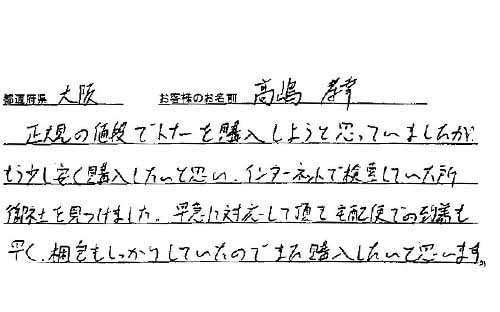 都道府県 大阪 お客様のお名前 高嶋
正規の値段でトナーを購入しようと思っていましたが、
もう少し安く購入したいと思い、インターネットで検索していた所
御社を見つけました。早急に対応して頂き宅配便での到着も
早く、梱包もしっかりしていたのでまた購入したいと思います。